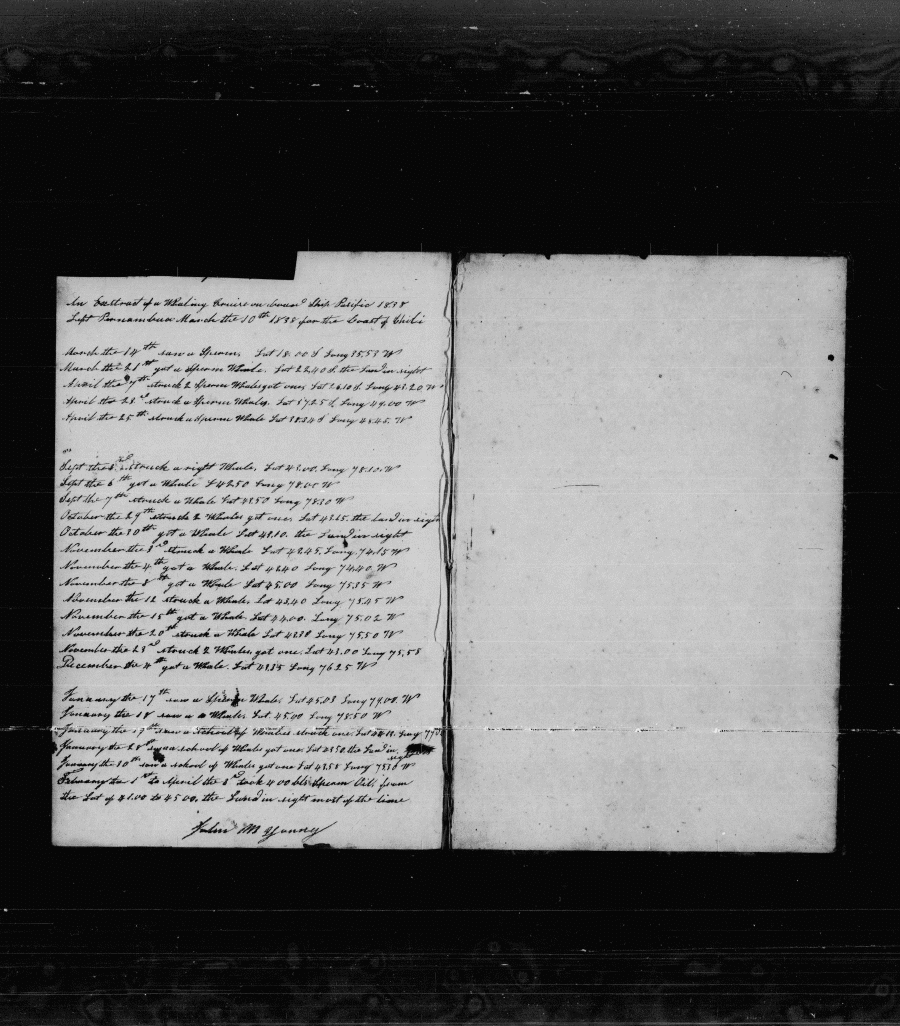 An Extract of a Whaling Cruise on board Ship Pacific 1838
Left Pernambuco March the 10th 1838 for the Coast of Chili
March the 14th saw a Sperm, Lat 18.00 S Long 35.53 W
March the 21st got a Sperm Whale. Lat 22.40 S. the Land in sight
April the 7th struck 2 Sperm Whales got one, Lat 26.10 S Long 43.20 W
April the 23d struck a Sperm Whale, Lat 37.25 S, Long 49.00 W
April the 25th struck a Sperm Whale Lat 38.34 S Long 48.45. W
Sept the struck a right Whale, Lat 43.00. Long 78.10. W
Sept the 6th got a Whale L 42.50 Long 78.00 W
Sept the 7th struck a Whale Lat 43.50 Long 78.30 W
October the 29th struck 2 Whales got one. Lat 43.15. the land in sight
October the 30th got a Whale Lat 43.10. the Land in sight
November the 3d struck a Whale Lat 43.45. Long. 74.15 W
November the 4th got a Whale. Lat 43.40 Long 74.40. W
November the 8th got a Whale Lat 45.00 Long 75.35 W
November the 12 struck a Whale, Lat 43.40 Long 75.45 W
November the 15th got a Whale. Lat 44.00. Long 75.02 W
November the 20th struck a Whale Lat 43.30 Long 75.50 W
November the 23d struck 2 Whales, got one. Lat 43.00 Long 75,58
December the 4th got a Whale. Lat 43.35 Long 76.25 W
January the 17th saw a Sperm Whale Lat 45.03 Long 74.08. W
January the 18 saw a Whale. Lat. 45.00 Long 75.50 W
January the 19th saw a school of Whales struck one. Lat Long
January the 28th saw school of Whales got one Lat 43.50 the Land in sight
January the 30th saw a school of Whales got one Lat 43.58 Long W
February the 1st to April the 3d took 400 bls Sperm Oil, from
the Lat of 41.00 to 45.00. the Land in sight most of the time
John M Young